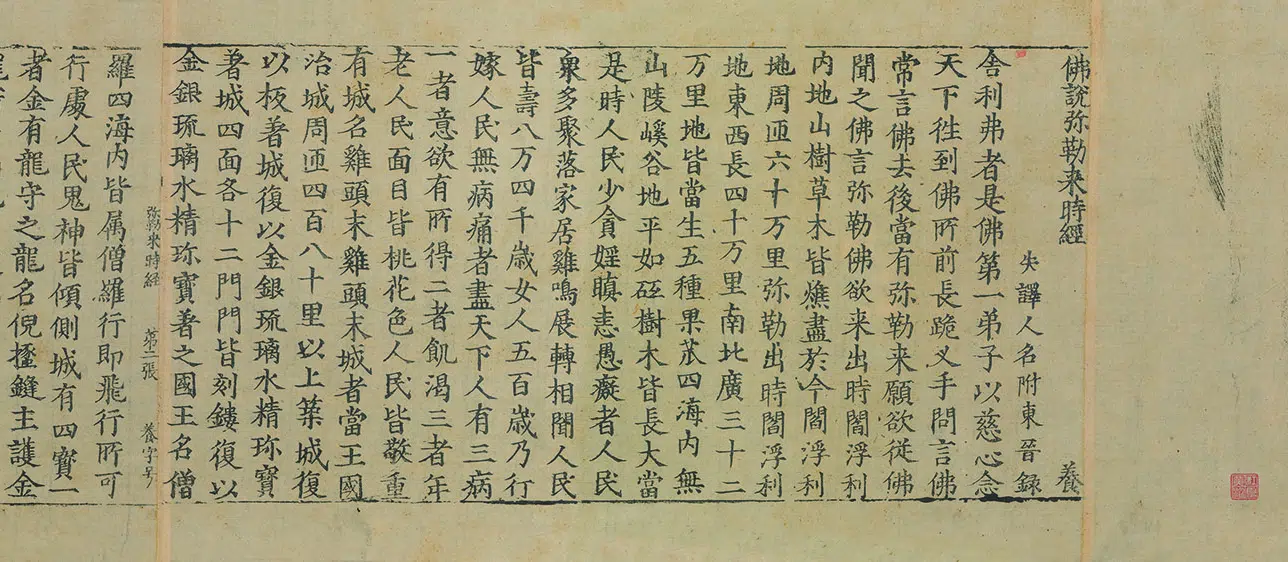 佛說弥勒来時經
養
失譯人名附東晉錄
舍利弗者是佛第一弟子以慈心念
天下徃到佛所前長跪叉手問言佛
常言佛去後當有弥勒来願欲從佛
聞之佛言弥勒佛欲来出時閻浮利
內地山樹草木皆燋盡於今閻浮利
地周迊六十万里弥勒出時閻浮利
地東西長四十万里南北廣三十二
万里地皆當生五種果蓏四海內無
山陵嵠谷地平如砥樹木皆長大當
是時人民少貪婬瞋恚愚癡者人民
衆多聚落家居雞鳴展轉相聞人民
皆壽八万四千歲女人五百歲乃行
嫁人民無病痛者盡天下人有三病
一者意欲有所得二者飢渴三者年
老人民面目皆桃花色人民皆敬重
有城名雞頭末雞頭末城者當王國
治城周迊四百八十里以上築城復
以板著城復以金銀琉璃水精珎寶
著城四面各十二門門皆刻鏤復以
金銀琉璃水精珎寶著之國王名僧
弥勒来時経 苐二張 養字号
羅四海內皆属僧羅行即飛行所可
行處人民鬼神皆傾側城有四寶一
者金有龍守之龍名倪擥鏠主護金